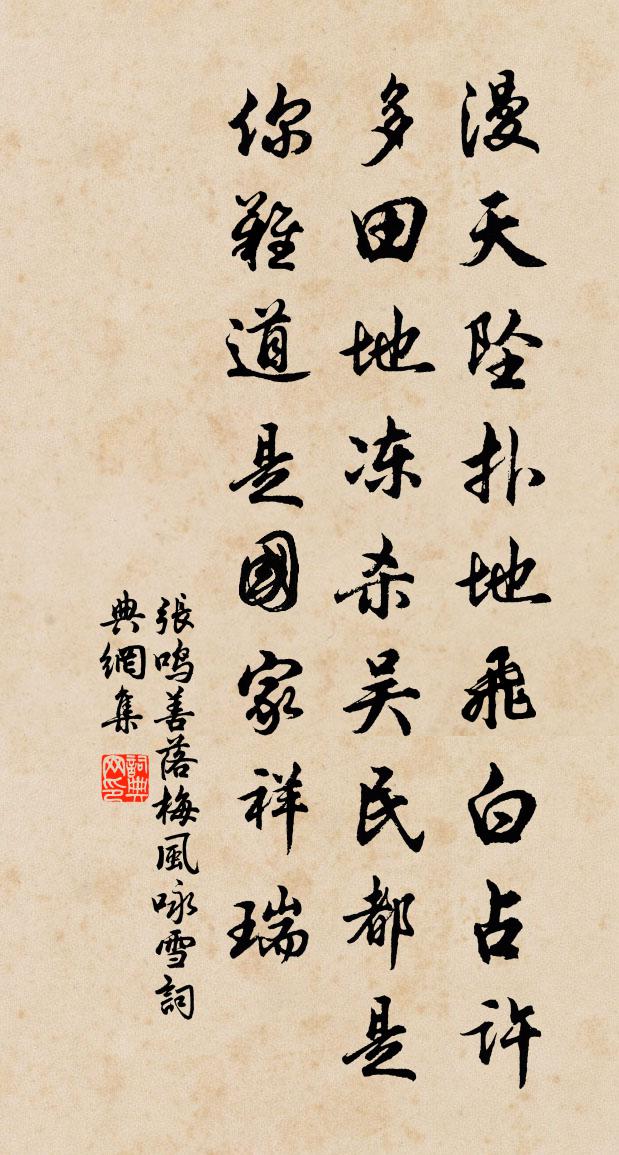 漫天坠扑地飛白占许
多田地冻杀吴民都是
你難道是國家祥瑞
張鸣善落梅風咏雪詞
典網集
詞典网印